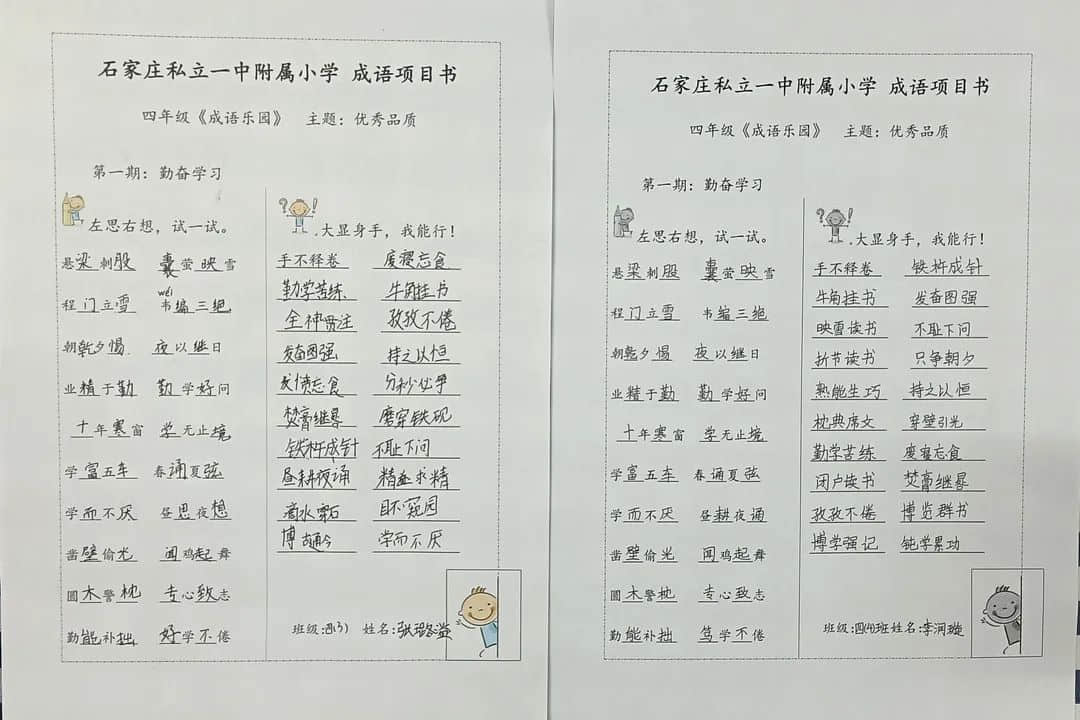 石家庄私立一中附属小学 成语项目书
四年级《成语乐园》 主题：优秀品质
第一期：勤奋学习
左思右想，试一试。
悬梁刺股 囊萤映雪
wéi
程门立雪 韦编三绝
朝乾夕惕 夜以继日
业精于勤 勤学好问
十年寒窗 学无止境
学富五车 春诵夏弦
学而不厌 昼思夜想
凿壁偷光 闻鸡起舞
圆木警枕 专心致志
勤能补拙 好学不倦
?!
.大显身手，我能行！
手不释卷 废寝忘食
勤学苦练 牛角挂书
全神贯注 孜孜不倦
发奋图强 持之以恒
发愤忘食 分秒必争
焚膏继晷 磨穿铁砚
铁杵成针 不耻下问
昼耕夜诵 精益求精
滴水穿石 目不窥园
博古通今 学而不厌
班级:四(3) 姓名:张
石家庄私立一中附属小学 成语项目书
四年级《成语乐园》 主题：优秀品质
第一期：勤奋学习
左思右想，试一试。
悬梁刺股 囊萤映雪
程门立雪 韦编三绝
朝乾夕惕 夜以继日
业精于勤 勤学好问
十年寒窗 学无止境
学富五车 春诵夏弦
学而不厌 昼耕夜诵
凿壁偷光 闻鸡起舞
圆木警枕 专心致志
勤能补拙 笃学不倦
?!
.大显身手，我能行！
手不释卷 铁杵成针
牛角挂书 发奋图强
映雪读书 不耻下问
折节读书 只争朝夕
熟能生巧 持之以恒
枕典席文 穿壁引光
勤学苦练 废寝忘食
闭户读书 焚膏继晷
孜孜不倦 博览群书
博学强记 钝学累功
班级:四(4)班姓名:李润璇